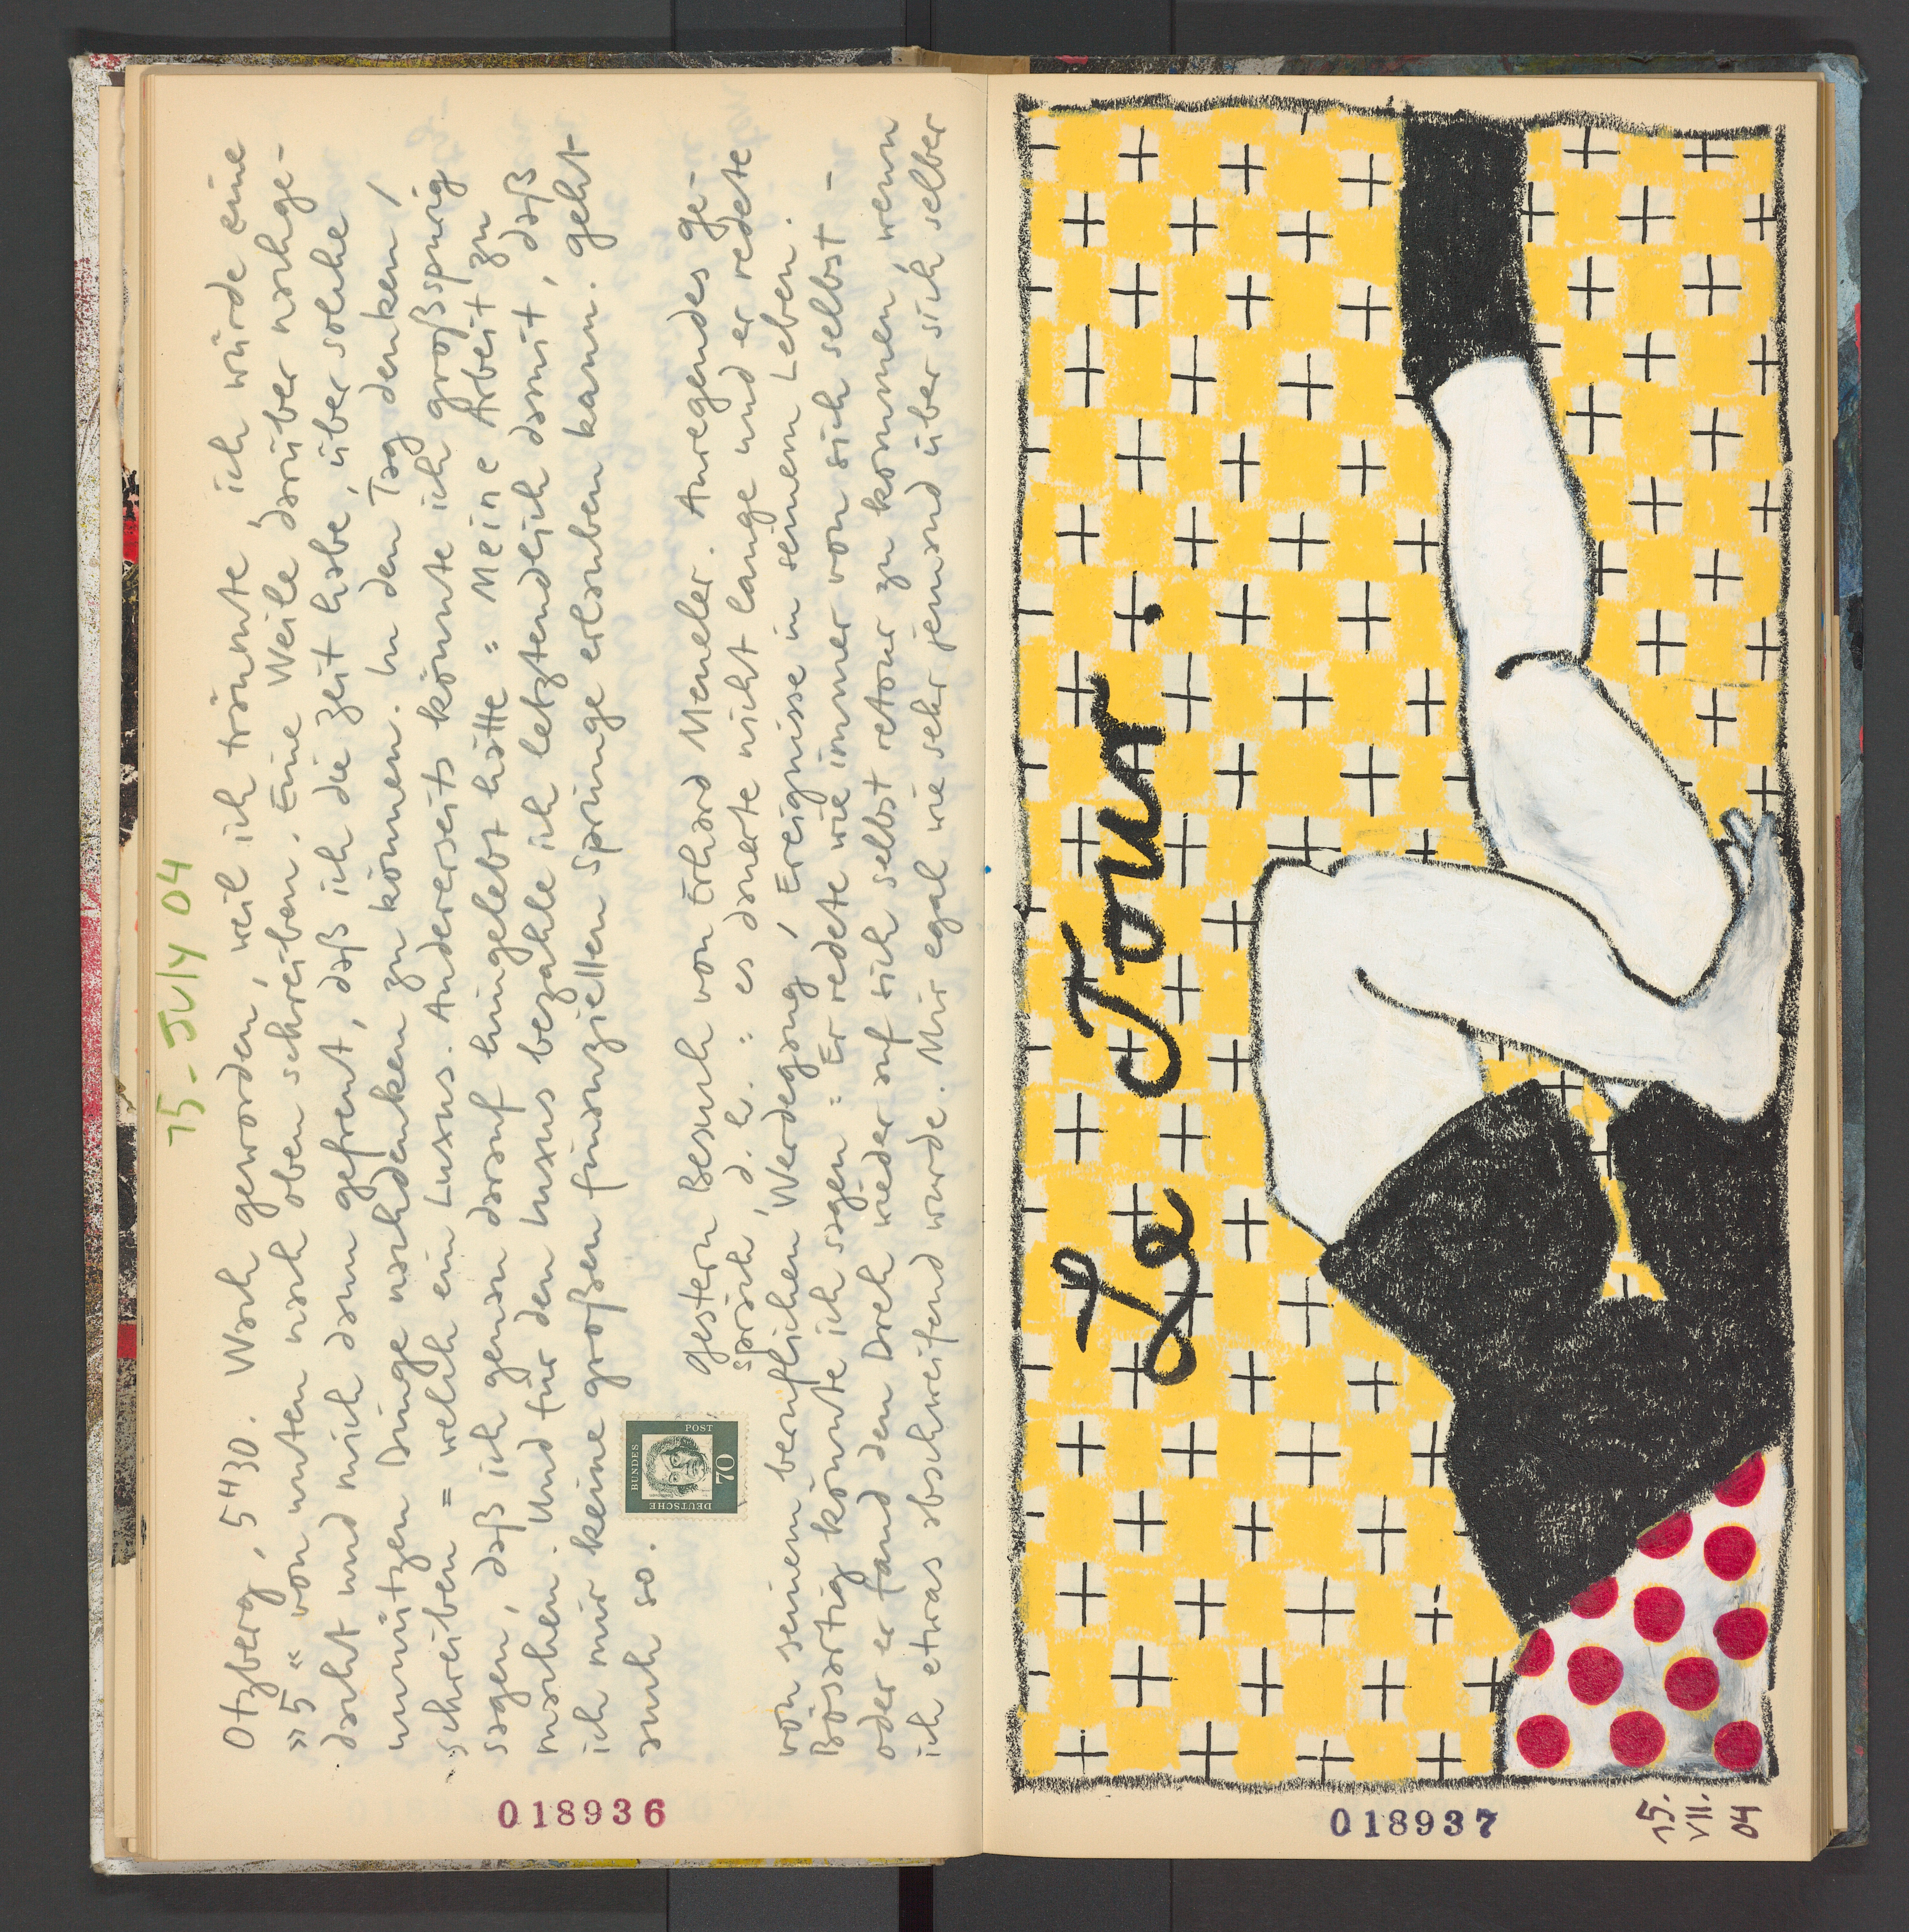 15. July 04
Otzberg, 5 H 30. Wach geworden, weil ich träumte, ich würde eine
»5« von unten nach oben schreiben. Eine Weile darüber nachge-
dacht und mich dann gefreut, daß ich die Zeit habe, über solche
unnützen Dinge nachdenken zu können. In den Tag denken,
schreiben = welch ein Luxus. Andererseits könnte ich großspurig
sagen, daß ich genau darauf hingelebt hätte: Meine Arbeit zu
machen. Und für den Luxus bezahle ich letztendlich damit, daß
ich mir keine großen finanziellen Sprünge erlauben kann. geht
auch so.
gestern Besuch von Erhard Meueler. Anregendes ge-
spräch, d.h.: es dauerte nicht lange und er redete
von seinem beruflichen Werdegang, Ereignisse in seinem Leben.
Bösartig könnte ich sagen: Er redete wie immer von sich selbst -
oder er fand den Dreh wieder auf sich selbst retour zu kommen, wenn
ich etwas abschweifend wurde. Mir egal wie sehr jemand über sich selber
DEUTSCHE
BUNDES
POST
70
018936
Le Tour.
018937
15.
VII.
04